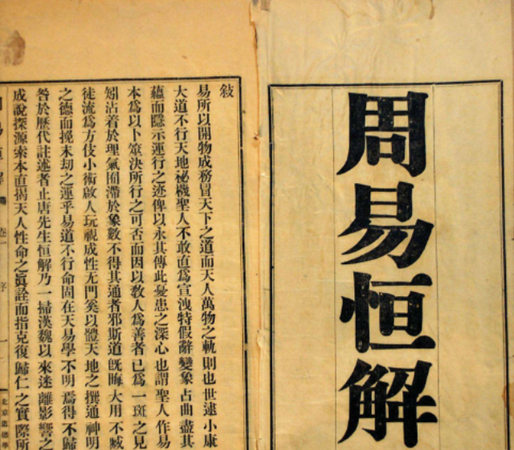 周易恒解
敍
易所以開物成務冒天下之道而天人萬物之軌則也世逮小康
大道不行天地祕機聖人不敢直爲宣洩特假辭變象占曲盡其
蘊而隱示運行之迹俾以永其傳此憂患之深心也謂聖人作易
本爲以卜筮決所行之可否而因以敎人爲善者已爲一斑之見
矧沾着於理氣囿滯於象數不得其通者邪斯道旣晦大用不臧
徒流爲方伎小術啟人玩視成性无門奚以體天地之撰通神明
之德而挽末劫之運乎易道不行命固在天易學不明焉得不歸
咎於歷代註述者止唐先生恒解乃一掃漢魏以來迷離影響之
成說探源索本直揭天人性命之眞詮而指克復歸仁之實際所
周易恒解 卷 序